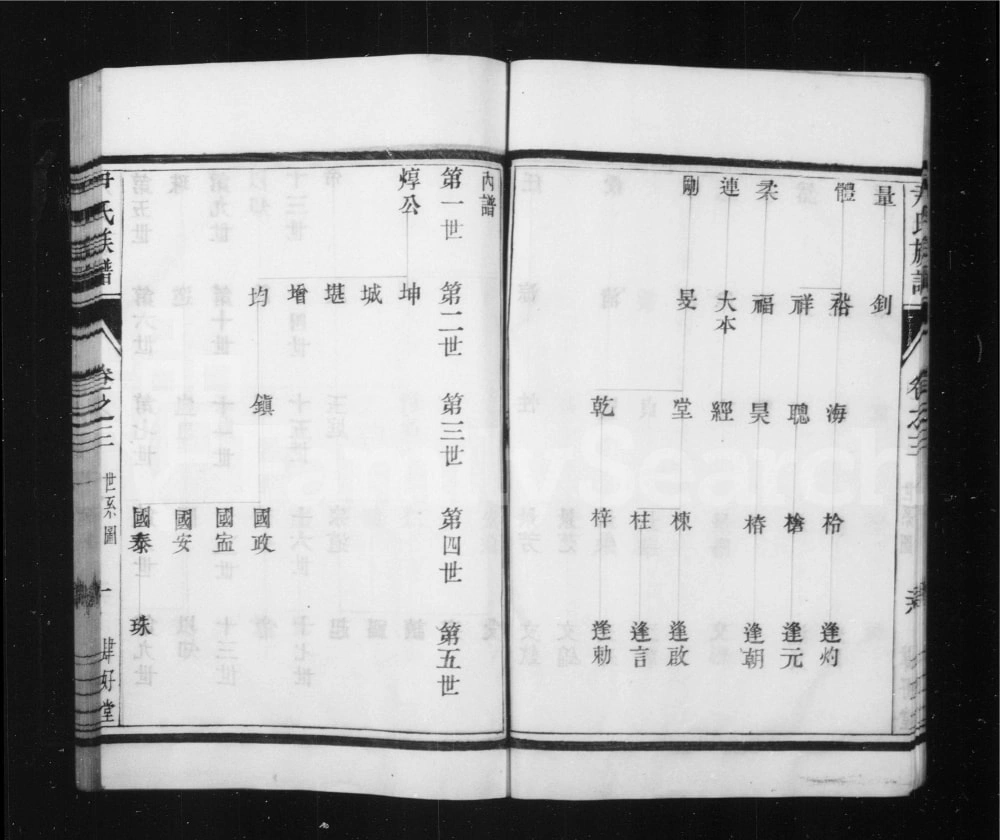 量 釗
體 𥙿 海 柃 逢灼
祥 聰 樁 逢元
柔 福 昊 㯋 逢朝
連 大本 經
剛 旻 堂 棟 逢啟
柱 逢言
乾 梓 逢勑
內譜
第一世 第二世 第三世 第四世 第五世
焞公 坤
城
堪
增
均 鎮 國政
國寍
國安
國泰 珠
尹氏族譜 卷之三 世系圖 一 肆好堂